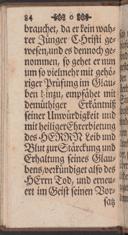 84 o
brauchet, da er kein wah-
rer Jünger Christi ge-
wesen, und es dennoch ge-
nommen, so gehet er nun
um so vielmehr mit gehö-
riger Prüfung im Glau-
ben hinzu, empfähet mit
demüthiger Erkäntniß
seiner Unwürdigkeit und
mit heiliger Ehrerbietung
des HERRN Leib und
Blut zur Stärckung und
Erhaltung seines Glau-
bens, verkündiget also des
HErrn Tod, und erneu-
ert im Geist seinen Vor-
satz